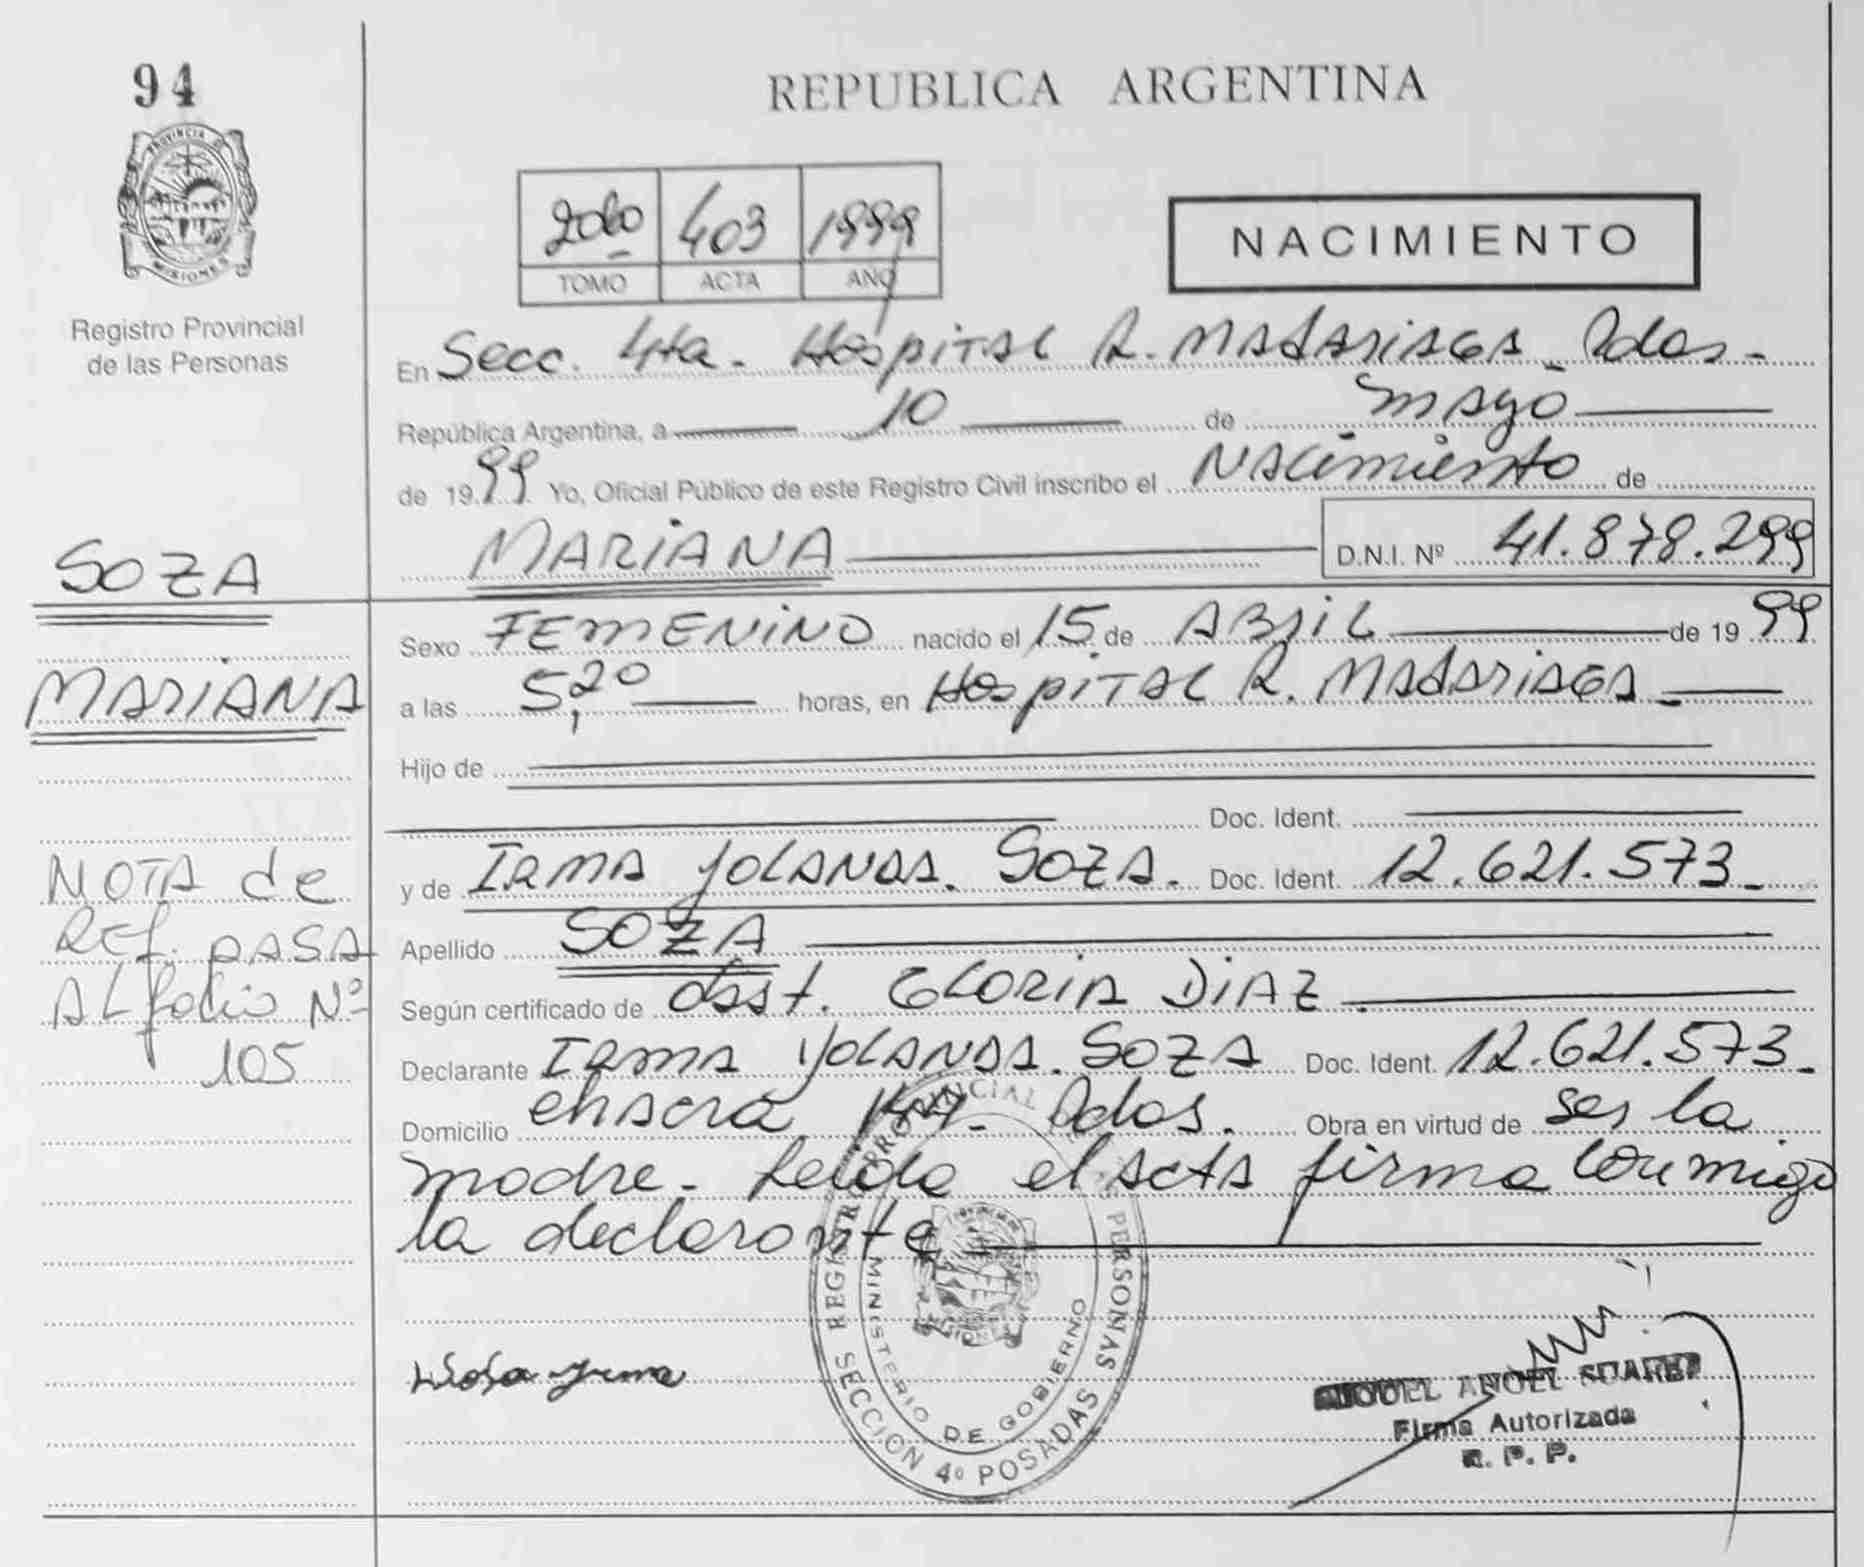 94
PROVINCIA DE
MISIONES
Registro Provincial
de las Personas
REPUBLICA ARGENTINA
2do 403 1999
TOMO ACTA AÑO
NACIMIENTO
En Secc. 4ta. Hospital R. MADARIAGA. Pdas.-
República Argentina, a 10 de mayo
de 1999 Yo, Oficial Público de este Registro Civil inscribo el Nacimiento de
MARIANA D.N.I. Nº 41.878.299
SOZA
MARIANA
Sexo FEMENINO nacido el 15 de ABRIL de 1999
a las 5,20 horas, en Hospital R. MADARIAGA
Hijo de
Doc. Ident.
y de IRMA YOLANDA. SOZA. Doc. Ident. 12.621.573.-
Apellido SOZA
Según certificado de Obst. GLORIA DIAZ.
Declarante IRMA YOLANDA. SOZA Doc. Ident. 12.621.573.-
Domicilio chacra Pdas. Obra en virtud de ser la
madre.- Leida el acta firma conmigo
la declarante
NOTA de
REf. PASA
AL folio Nº
105
REGISTRO PROVINCIAL DE LAS PERSONAS
MINISTERIO DE GOBIERNO
SECCION 4º POSADAS
MIGUEL ANGEL SUAREZ
Firma Autorizada
R. P. P.